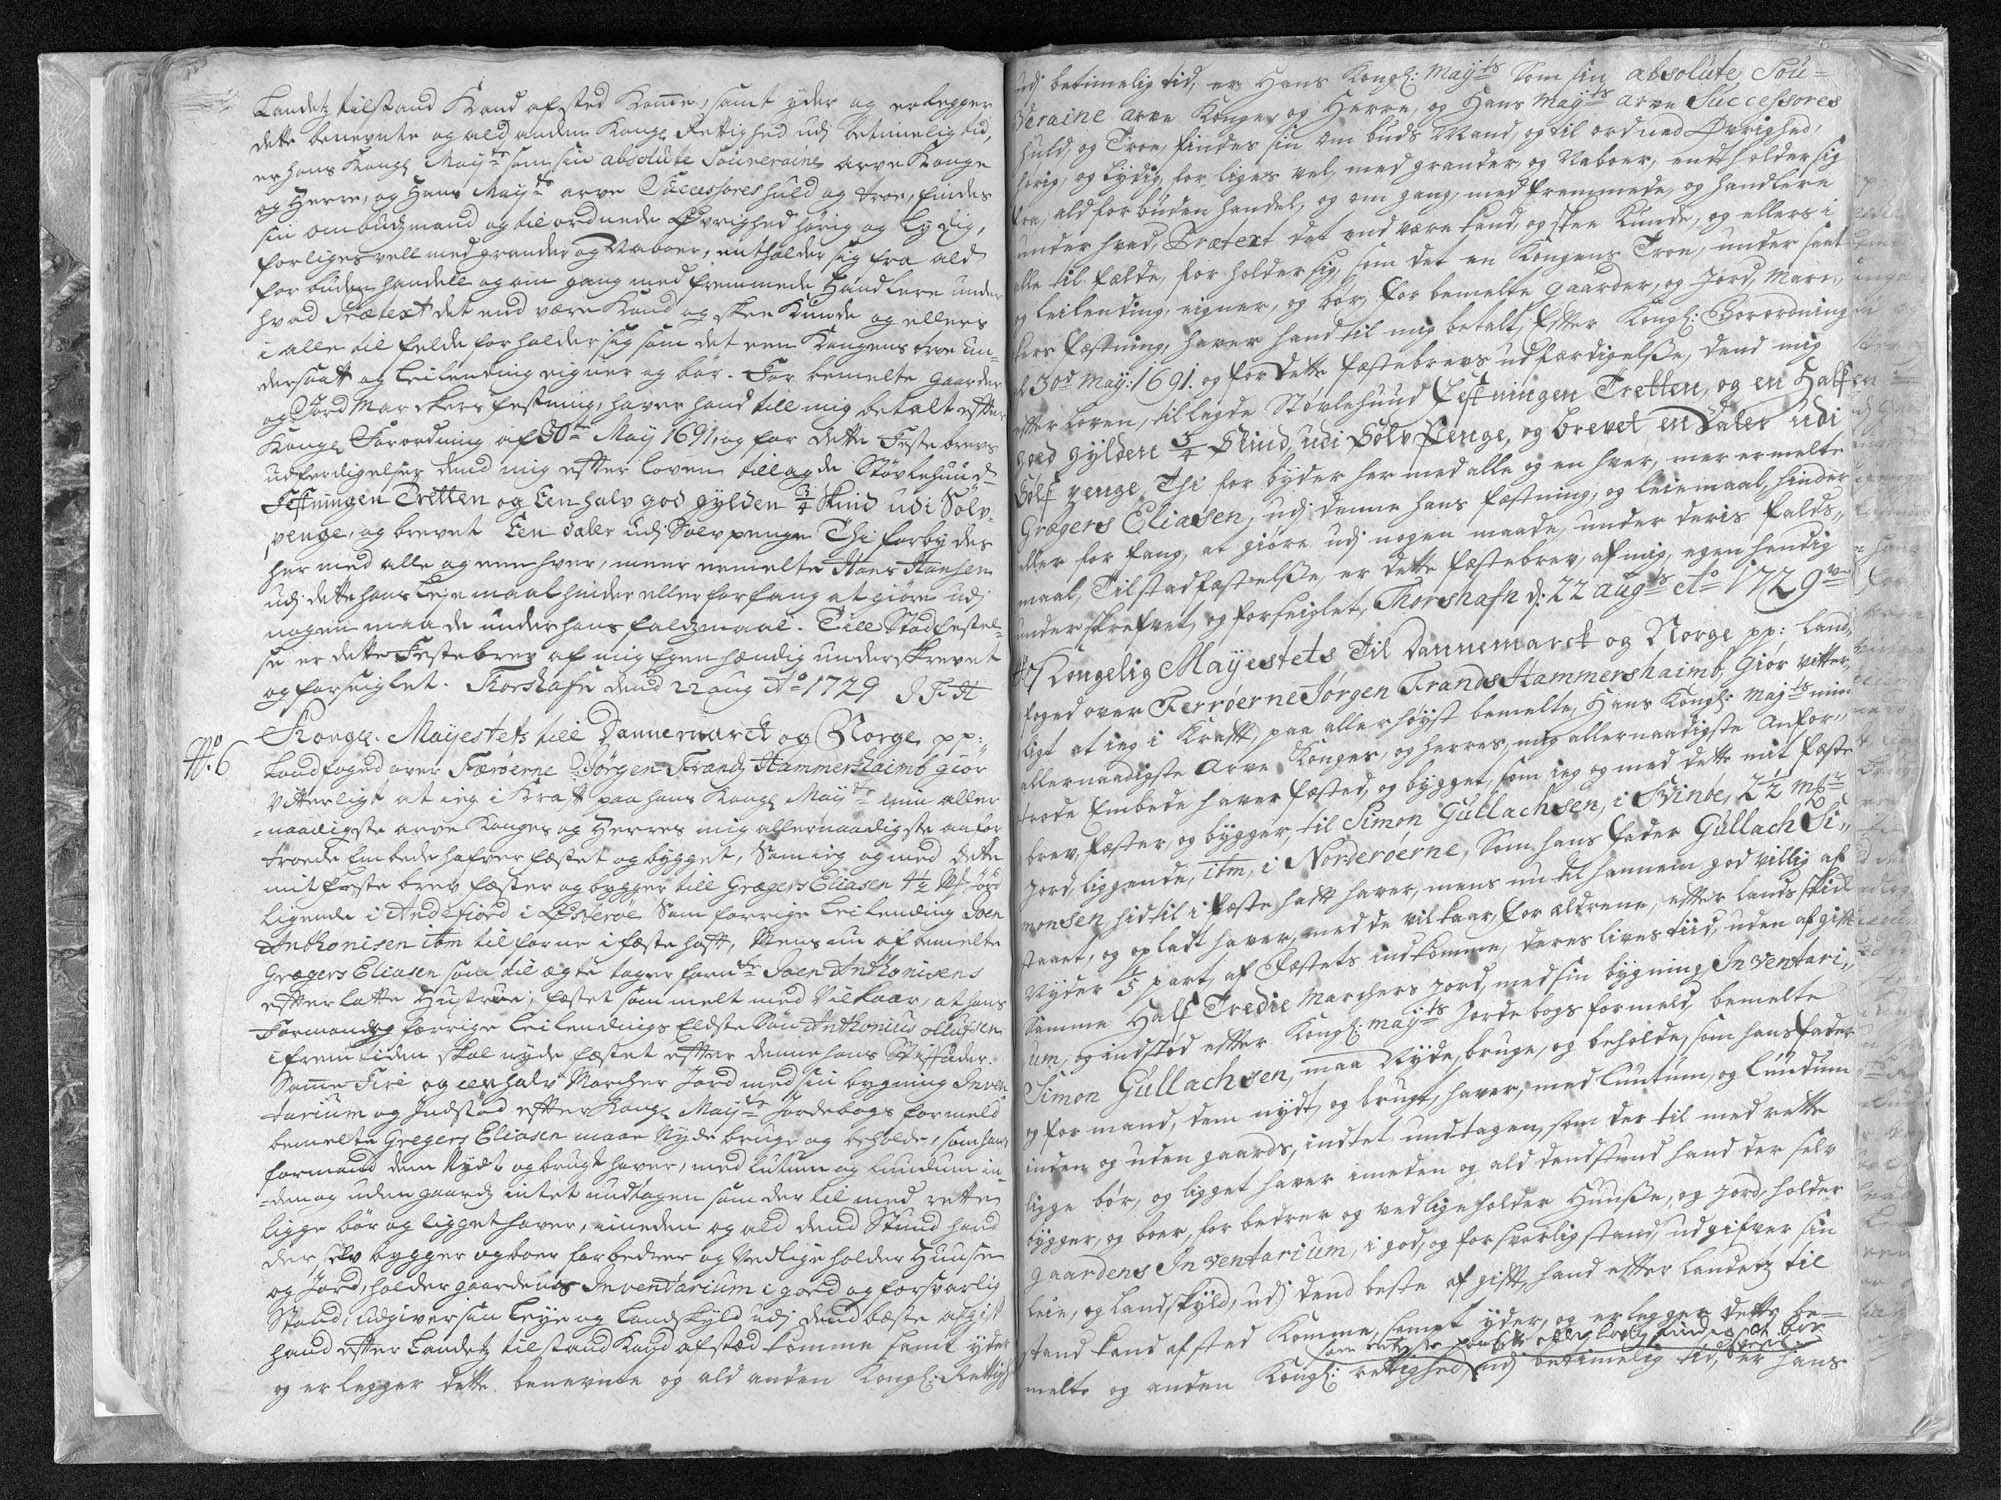 Landetz tilstand Kand afsted Komme, samt yder og erlegger
dette benevnte og ald anden Kongl Rettighed udj betimelig tid,
er hans Kongl Mayts som sin absolute Souveraine arve Konge
og Herre, og Hans Mayts arve Successores huld og troe, findes
sin ombudzmand og til ordnede Øvrighed hörig og lydig,
forliges vell med grander og Naboer, entholder sig fra ald
forbuden handell og om gang med fremmede Handlere under
hvad Prætext det end være Kand og skee Kunde og ellers
i alle til felde forholder sig som det een Kongens troe un=
dersaatt og Leilending eigner og bör. For bemelte gaarder
og Jord Marckers festning, haver hand till mig betalt efter
Kongl Forordning af 30te May 1691, og for dette Festebrevs
udferdigelse, dend mig efter loven tillagde Støvlehuud
Festningen Tretten og Een halv god gylden 3/4 Skind udi Sölv
penge, og brevet Een daler udj Sølvpenge Thi forbydes
her med alle og een hver, meer ermelte Hans Hansen
udj dette hans Leje maal hinder eller forfang at giøre udj
nogen maade under hans falzmaal. Till Stadfestel-
se er dette Festebrev af mig Egen hændig underskrevet
og forseiglet. Thorshafn dend 22 aug Ao 1729 J F H
No: 6
Kongl. Mayestets till Dannemarck og Norge pp:
Landfoged over Færøerne Jörgen Frandz Hammershaimb giör
Vitterligt at ieg i Kraft paa hans Kongl Mayts min aller
=naadigste arve Konges og Herres mig allernaadigste anfor
troede Embede hafver fæstet og bygget, Som ieg og med dette
mit feste brev fæster og bygger till Grægers Eliasen 4½ Mk Jord
ligende i Andefiord i Østeröe Som forrige Leilending Joen
Anthonisen itm tilforne i fæste haft, Mens nu af bemelte
Grægers Eliasen som til ægte tager forn Joen Anthonisens
efterlatte Hustrue, fæstet som melt med Vilkaar, at hans
Formands og forrige Leilendings Eldste Sön Anthonius ollufsen
i fremtiden skal nyde fæstet effter denne hans Stiffader.
Samme Fire og een halv Marcher Jord med sin bygning Inven
tarium og Indstöd efter Kongl Mayts Jordebogs formeld
bemelte Gregers Eliasen maae Nyde bruge og beholde, som hans
formand dem Nydt og brugt haver, med lutum og lundum in=
=den og uden gaards intet undtagen som der til med rette
ligge bör og ligget haver, imeden og ald dend Stund hand
der, selv bygger og boer forbedrer og Vedligeholder Huuse
og Jord, holder gaardens Inventarium i goed og forsvarlig
Stand, udgiver sin Leye og Landskyld udj dend bæste afgift
hand efter Landetz tilstand Kand afsted komme samt yder
og erlegger dette benevnte og ald anden Kongl: Rettighed
udj betimelig tid, er Hans Kongl: Mayts Som sin absolute Sou=
veraine arve Konge og Herre, og Hans Mayts arve Successores
huld og Troe, findes sin om buds Mand, og til ordned Øvrighed,
hörig, og Lydig, for liges vel, med grander, og Naboer, endtholder sig
fra, ald for buden handel, og om gang, med fremmede, og handlere
under hvad, Prætext det end være kand, og skee Kunde, og ellers i
alle til falde, for holder sig, som det en Kongens Troe, under saat
og leilending, eigner, og bör, for bemelte gaarder, og Jord, Marc=
kers fæstning, haver hand til mig betalt, efter Kongl: Forordning
af 30de May: 1691. og for dette fæstebrevs udfærdigelsse, dend mig
efter loven, tillagde Støvlehuud Festningen Tretten, og en Half
goed gylden 3/4 Skind, udi Sölv Penge, og brevet en Daler udi
Sölf penge Thi for byder her med alle og en hver, mer ermelte
Grægers Eliasen, udj denne hans fæstning, og leiemaal, hinder
eller for fang, at giøre udj nogen maade, under deris falds=
maal, Til stadfæstelsse, er dette fæstebrev, af mig, egen hendig
underskrefvet, og forseiglet, Thorshafn d: 22 augts Ao 1729
No: 7 Kongelig Mayestets Til Dannemarck og Norge pp: Land=
foged over Ferrøerne Jörgen Frands Hammershaimb Giør vitter=
ligt at ieg i Kraft, paa aller høyst bemelte, Hans Kongl: Mayts min
allernaadigste Arve Konges, og herres, mig allernaadigste Anfor=
trode Embede haver fæsted, og bygget, som ieg og med dette mit fæste
brev, fæster og bygger, til Simon Gullachsen, i Svinöe, 2½ mk
Jord, liggende, itm, i Norderøerne, Som hans fader Gullach Si=
monsen hidtil i fæste haft haver, mens nu til hannem god villig af
staaet, og opladt haver, med de vilkaar, for ældrene, efter lands skik
Nyder 1/5 part, af fæstets indkomme, deres lives tiid, uden afgift
Samme Half Tredie Marchers Jord, med sin bygning Inventari=
um, og indstöd efter Kongl: Mayts Jorde bogs formeld, bemelte
Simon Gullachsen, maa Nyde, bruge, og beholde, som hans fader
og for mand, dem nydt, og brugt, haver, med Luutum, og Lundum
inden og uden gaards, indtet undtagen, som der til med rette
ligge bör, og ligget haver imeden og ald dendstund hand der selv
bygger, og boer, for bedrer og vedligeholder Huusse, og Jord, holder
gaardens Inventarium, i god, og forsvarlig stand, udgifver sin
leie, og Landskyld, udj dend beste afgift, hand efter Landetz til
stand kand afsted Komme, sampt yder, og erlegger dette be=
melte og anden Kongl: rettighed, udj betimelig tid, er Hans